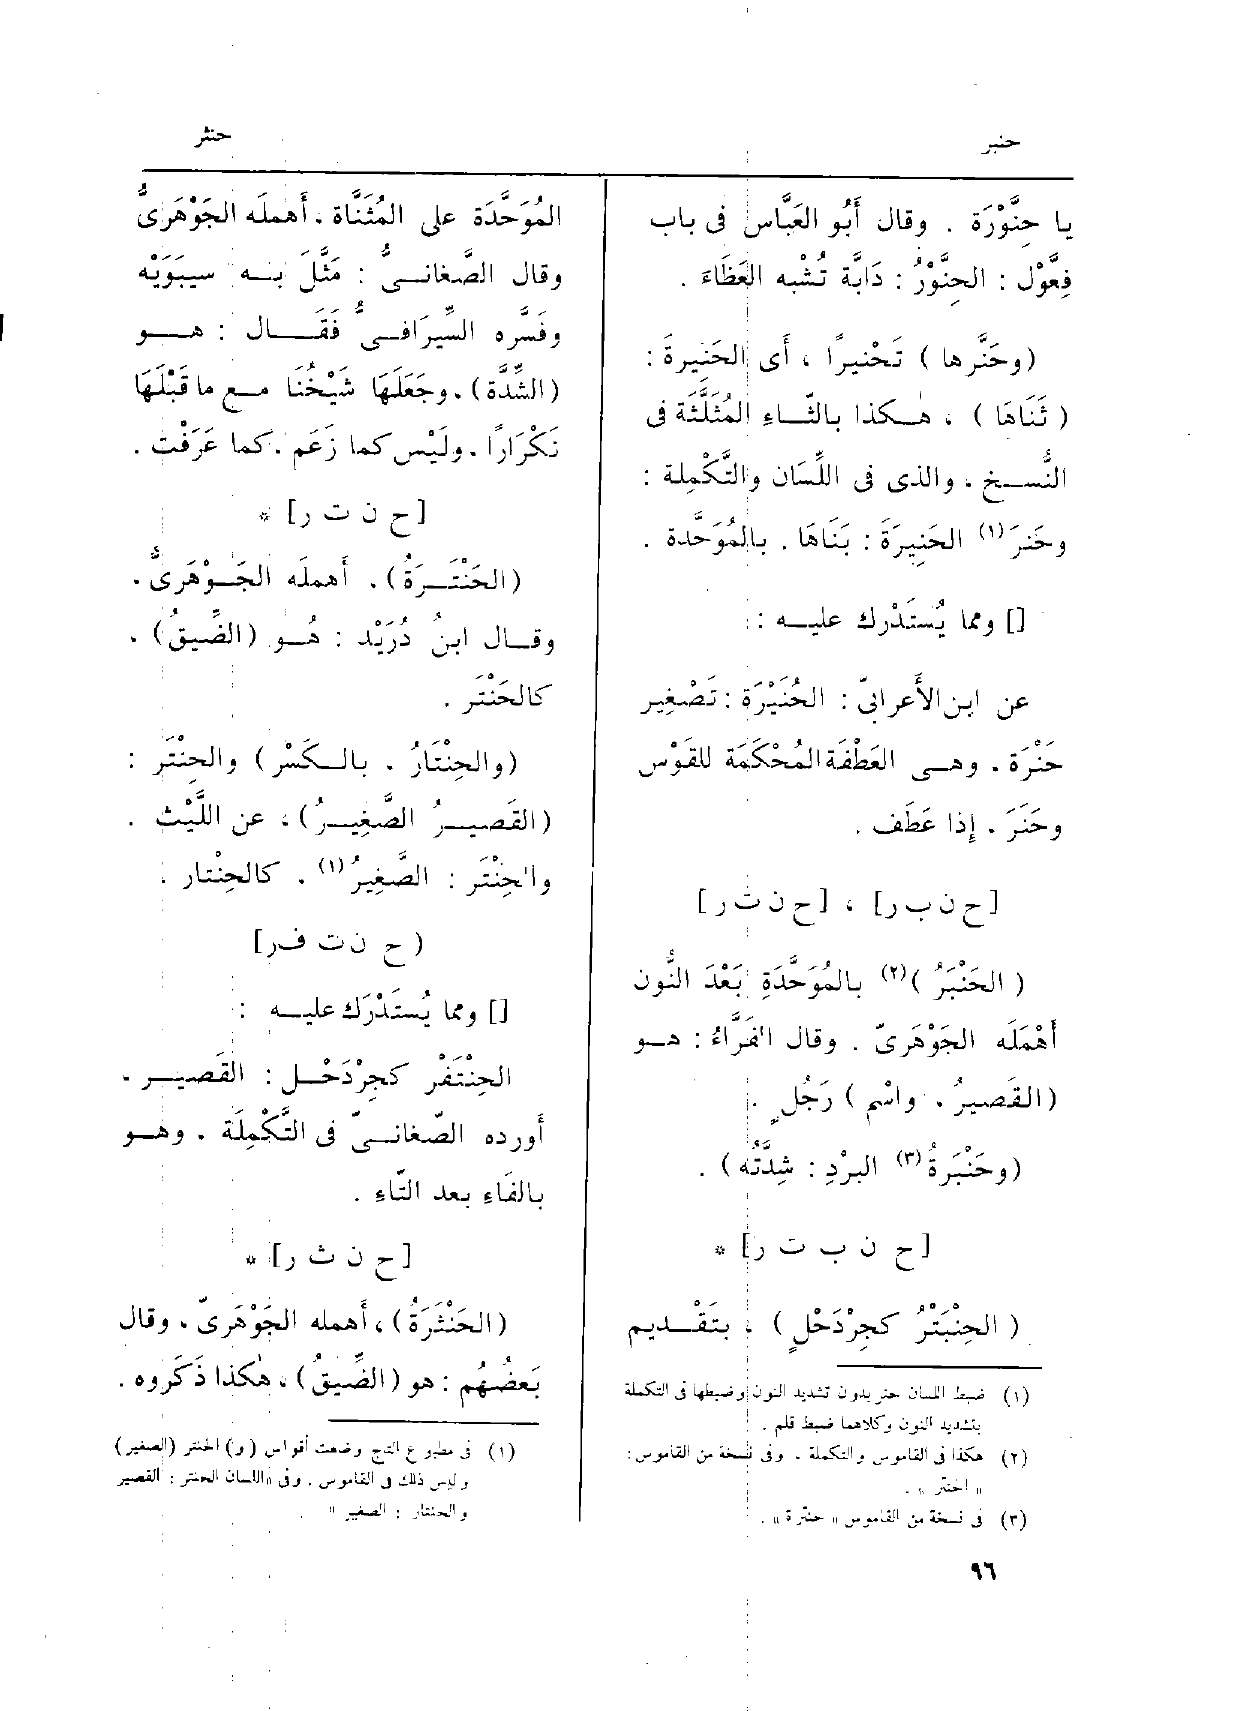 حنبر
حنثر
يا حِنَّوْرَة . وقال أَبُو العَبَّاس فى باب
فِعَّوْل : الحِنَّوْرُ : دَابَّة تُشْبِه العَظَاءَ .
(وحَنَّرها ) تَحْنيرًا ، أَى الحَنِيرةَ :
( ثَنَاهَا ) ، هٰكذا بالثَّاءِ المُثَلَّثَة فى
النُّسـخ ، والذى فى اللِّسَان والتَّكْمِلة :
وحَنرَ (١) الحَنِيرَةَ : بَنَاهَا . بالمُوَحَّدة .
[] ومما يُسْتَدْرك عليـه :
عن ابن الأَعرابىّ : الحُنَيْرَة : تَصْغِير
حَنْرَة ، وهـى العَطْفَة المُحْكَمَة للقَوْس
وحَنَرَ ، إِذا عَطَف .
[ح ن ب ر] ، [ح ن ث ر]
( الحَنْبَرُ ) (٢) بالمُوَحَّدَةِ بَعْدَ النُّون
أَهْمَلَه الجَوْهَرىّ . وقال الفَرَّاءُ : هـو
(القَصيرُ ، واسْم ) رَجُلٍ .
(وحَنْبَرةُ (٣) البرْدِ : شِدَّتُه ) .
[ح ن ب ت ر] *
( الحِنْبَتْرُ كجِرْدَحْلٍ ) ، بتَقْـديم
(١) ضبط اللسان حنر بدون تشديد النون وضبطها فى التكملة
بتشديد النون وكلاهما ضبط قلم .
(٢) هكذا فى القاموس والتكملة . وفى نسخة من القاموس :
« الحنثر » .
(٣) فى نسخة من القاموس « حنثرة » .
المُوَحَّدَة على المُثَنَّاة ، أَهملَه الجَوْهَرىُّ
وقال الصَّغانـىُّ : مَثَّلَ بـه سيبَوَيْه
وفَسَّره السِّيرَافـىُّ فَقَـال : هـو
(الشِّدَّة) ، وجَعَلَهَا شَيْخُنَا مـع ما قَبْلَهَا
تَكْرَارًا ، ولَيْس كما زَعَم ، كما عَرَفْت .
[ح ن ت ر] *
(الحَنْتَـرَةُ) ، أَهملَه الجَـوْهَرىُّ ،
وقـال ابنُ دُرَيْد : هُـو (الضِّيقُ) ،
كالحَنْتَر .
(والحِنْتَارُ ، بالـكَسْر ) والحِنْتَر :
(القَصيـرُ الصَّغِيـرُ) ، عن اللَّيْث .
والحِنْتَر : الصَّغِيرُ (١) ، كالحِنْتار .
( ح ن ت ف ر]
[] ومما يُسْتَدْرَك عليـه :
الحِنْتَفْر كجِرْدَحْـل : القَصيـر ،
أَورده الصّغانـىّ فى التَّكْمِلَة ، وهـو
بالفَاءِ بعد التَّاءِ .
[ح ن ث ر] *
(الحَنْثَرَةُ) ، أَهمله الجَوْهَرىّ ، وقال
بَعضُهُم : هو (الضِّيقُ) ، هٰكذا ذَكَروه .
(١) فى مطبوع التاج وضعت أقواس (و) الحنتر (الصغير)
وليس ذلك فى القاموس . وفى « اللسان الحنتر : القصير
والحنتار : الصغير »
٩٦